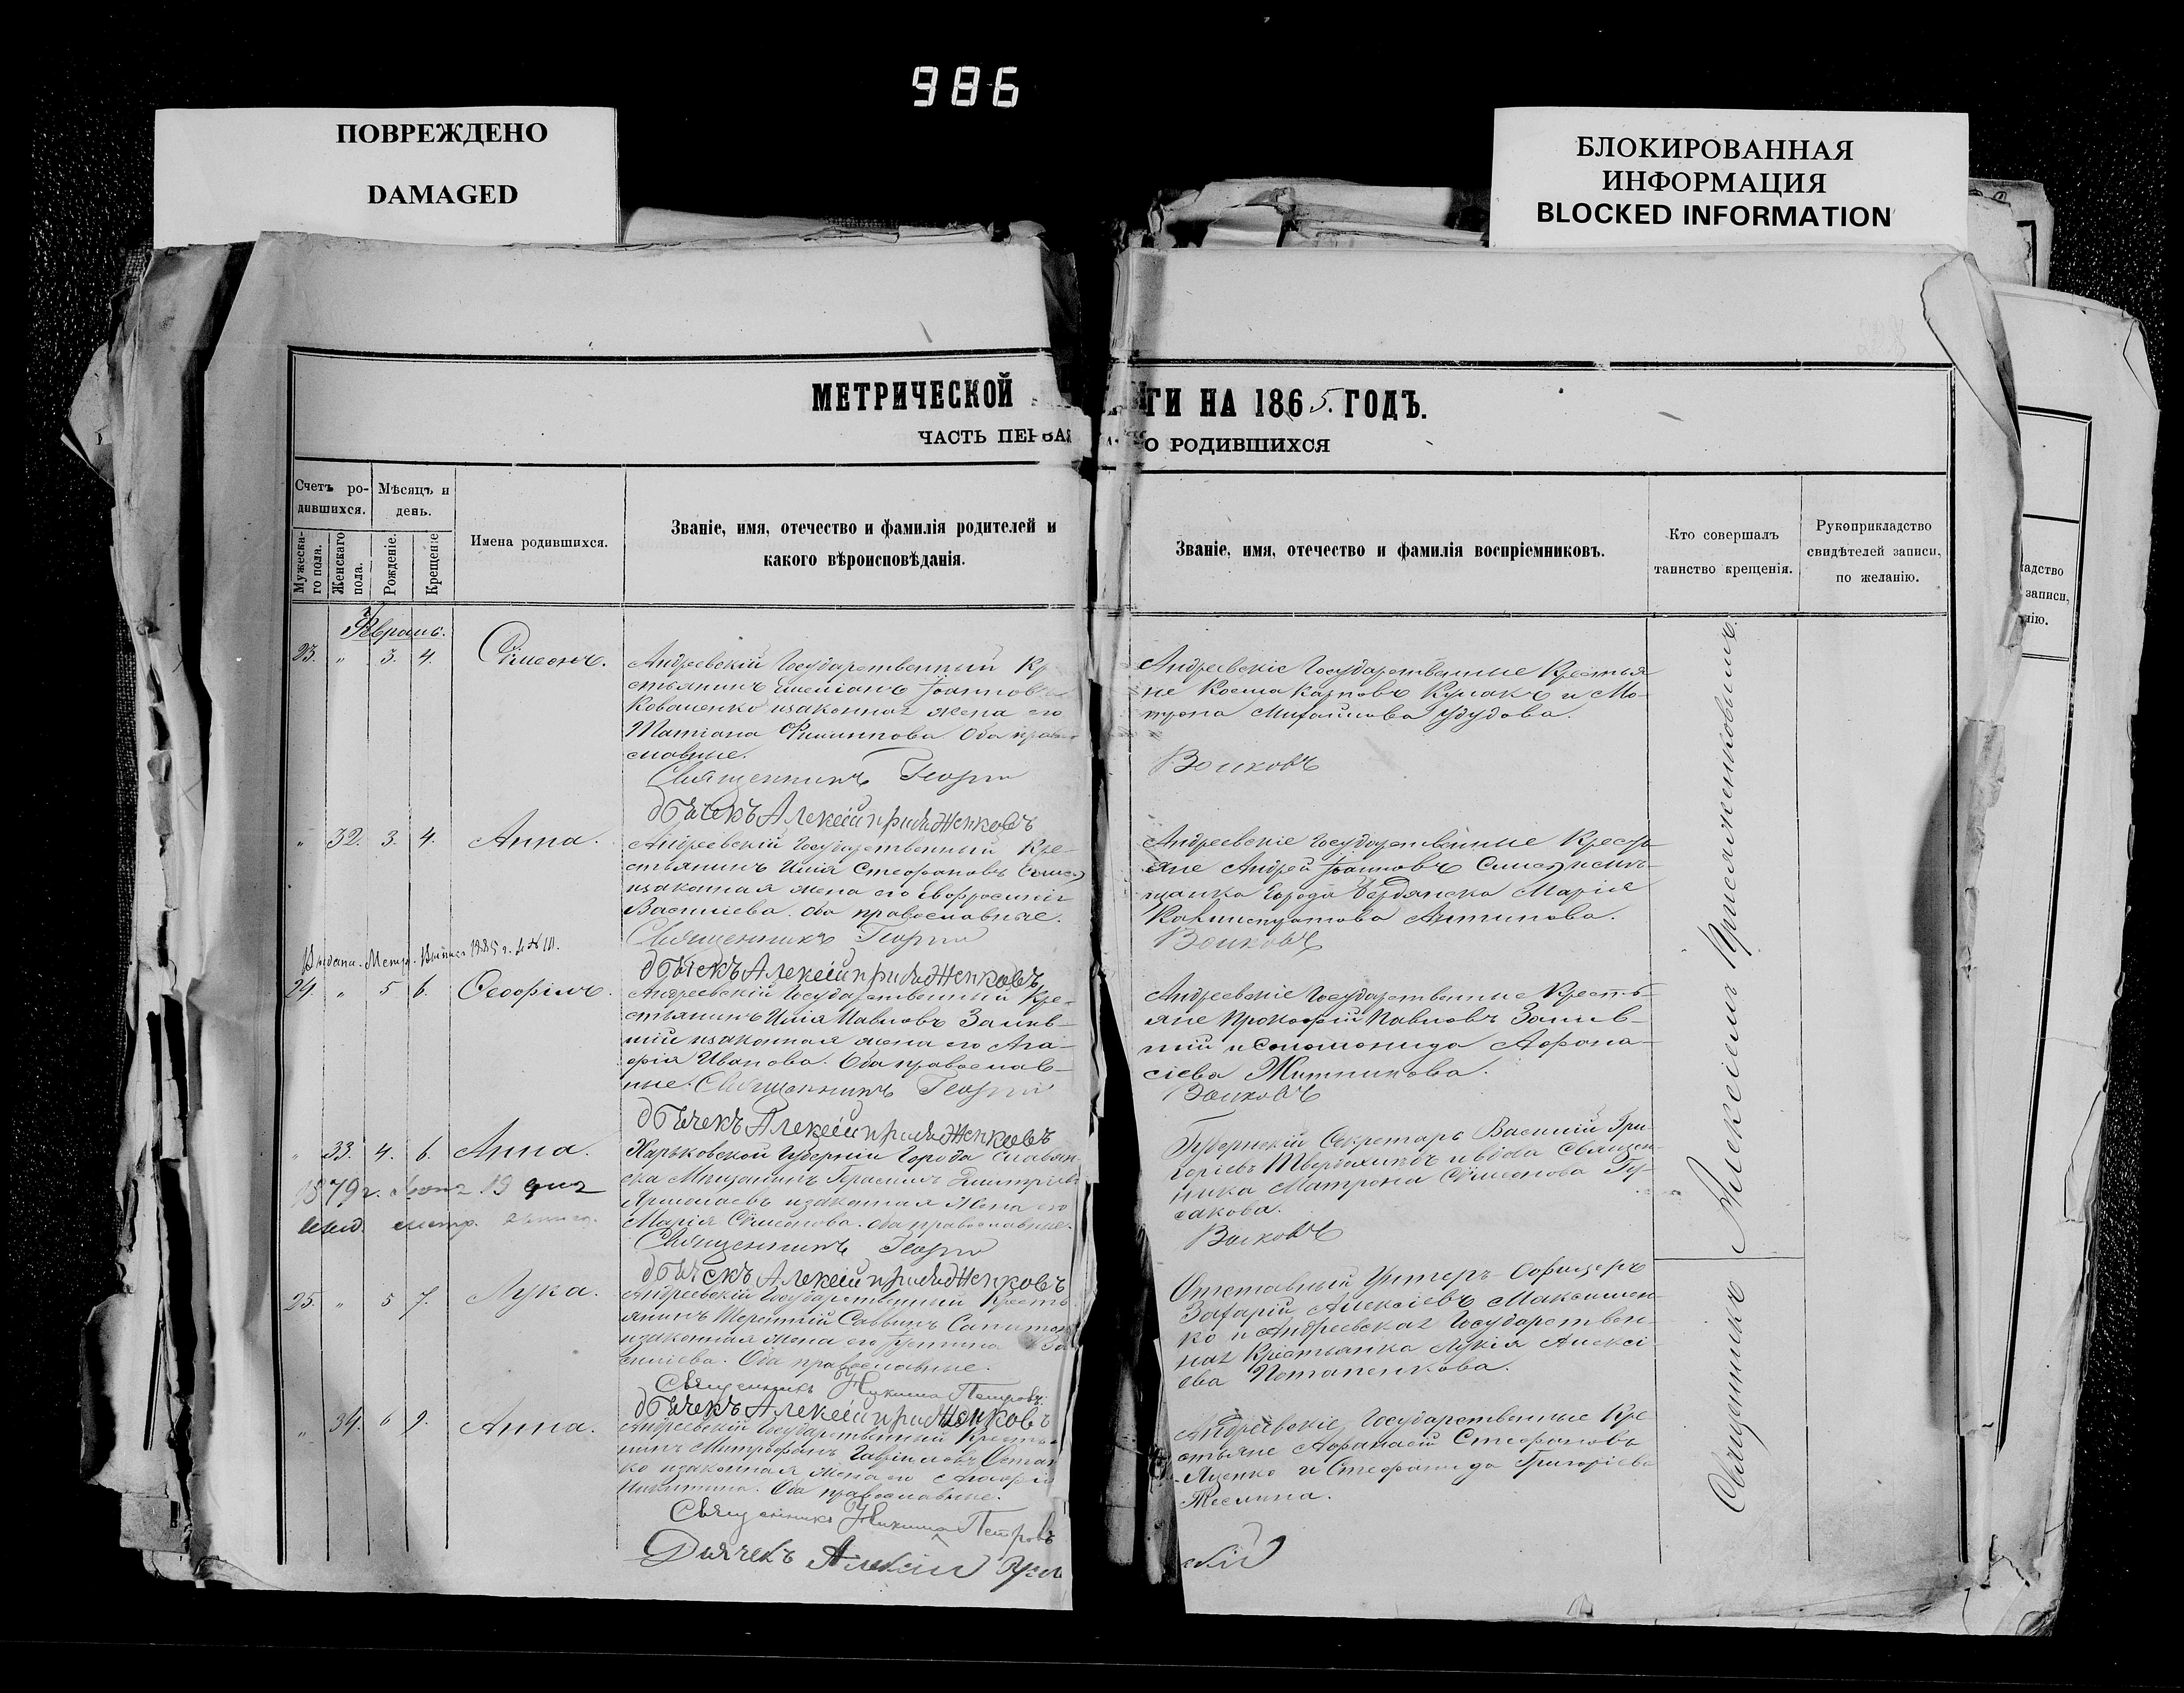 986
ПОВРЕЖДЕНО
DAMAGED
БЛОКИРОВАННАЯ
ИНФОРМАЦИЯ
BLOCKED INFORMATION
МЕТРИЧЕСКОЙ ГИ НА 1865. ГОДЪ.
ЧАСТЬ ПЕРВАЯ О РОДИВШИХСЯ
Счетъ ро-
дившихся.
Мужеска-
го пола.
Женскаго
пола.
Мѣсяцъ и
день.
Рожденіе.
Крещеніе.
Имена родившихся.
Званіе, имя, отечество и фамилія родителей и
какого вѣроисповѣданія.
Званіе, имя, отечество и фамилія воспріемниковъ.
Кто совершалъ
таинство крещенія.
Рукоприкладство
свидѣтелей записи,
по желанію.
адство
записи,
нію.
Февраль.
23. " 3. 4. Сѵмеонъ.
Андреевскій Государственный Кр
стьянинъ Емеліанъ Іоанновъ
Коваленко изаконная жена его
Татіана Филиппова. Оба право
славные.
Священникъ Георгій
Дьячекъ Алексій присяженковъ
Андреевскіе Государственные Крестья
не Косма Карповъ Кулакъ и Ма-
трона Михайлова Удудова.
Волковъ
" 32. 3. 4. Анна.
Андреевскій Государственный Кре-
стьянинъ Илія Стефановъ
изаконная жена его Евфросинія
Васильева. оба православные.
Священникъ Георгій
Дьячекъ Алексій присяженковъ
Андреевскіе Государственные Кресть
яне Андрей Іоанновъ
щанка города Бердянска Марія
Каллистратова Антипова.
Волковъ
Выдана. Метр. Выпись 1885 г.
24. " 5 6. Ѳеофілъ.
Андреевскій Государственный Кре-
стьянинъ Илія Павловъ Залив-
ній изаконная жена его Ага-
фія Иванова. Оба православ-
ные. Священникъ Георгій
Дьячекъ Алексій присяженковъ
Андреевскіе Государственные Кресть-
яне Прокофій Павловъ Залив-
ній и Соломонида Афона-
сіева Житникова.
Волковъ
" 33. 4. 6. Анна.
1879 г. 19 дня
метр.
Харьковской Губерніи Города Славян-
ска Мѣщанинъ Герасимъ Димитріевъ
Ярмолаевъ изаконная жена его
Марія Сѵмеонова. оба православные.
Священникъ Георгій
Дьячекъ Алексій присяженковъ
Губернскій Секретарь Василій Гри-
горіевъ Твердохлибъ и вдова Священ
ника Матрона Сѵмеонова Гу-
сакова.
Волковъ
25. " 5 7. Лука.
Андреевскій Государственный Кресть
янинъ Терентій Саввинъ
изаконная жена его Ірина Ва
силіева. Оба православные.
Священникъ Никита Петровъ.
Дьячекъ Алексій присяженковъ
Отставный Унтеръ-Офицеръ
Захарій Алексіевъ Максимен-
ко и Андреевская Государствен-
ная Крестьянка Лукія Алексі-
ева Потапенкова.
" 34. 6 9. Анна.
Андреевскій Государственный Кресть
нинъ Митрофанъ Гавріиловъ Остап
ко изаконная жена его
Никитина. Оба православные.
Священникъ Никита Петровъ
Дьячекъ Алексій
Андреевскіе Государственные Кре
стьяне Афанасій Стефановъ
Яценко и Стефанида Григоріева
Теслина.
Алексіемъ Присяженковымъ.
Священникъ